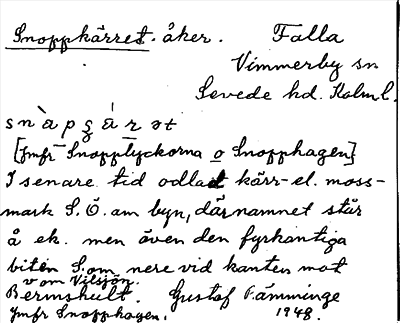 Snoppkärret. åker. Falla
Vimmerby sn
Sevede hd. Kalm l.
snàpʒárət
[Jmfr Snopptyckorna o Snopphagen]
I senare tid odlad kärr- el. moss-
mark S.Ö. om byn, där namnet står
å ek. men även den fyrkantiga
biten S.om nere vid kanten mot
v om Vilsjön.
Bermshult. Gustaf Fämminge
Jmfr Snopphagen. 1948.